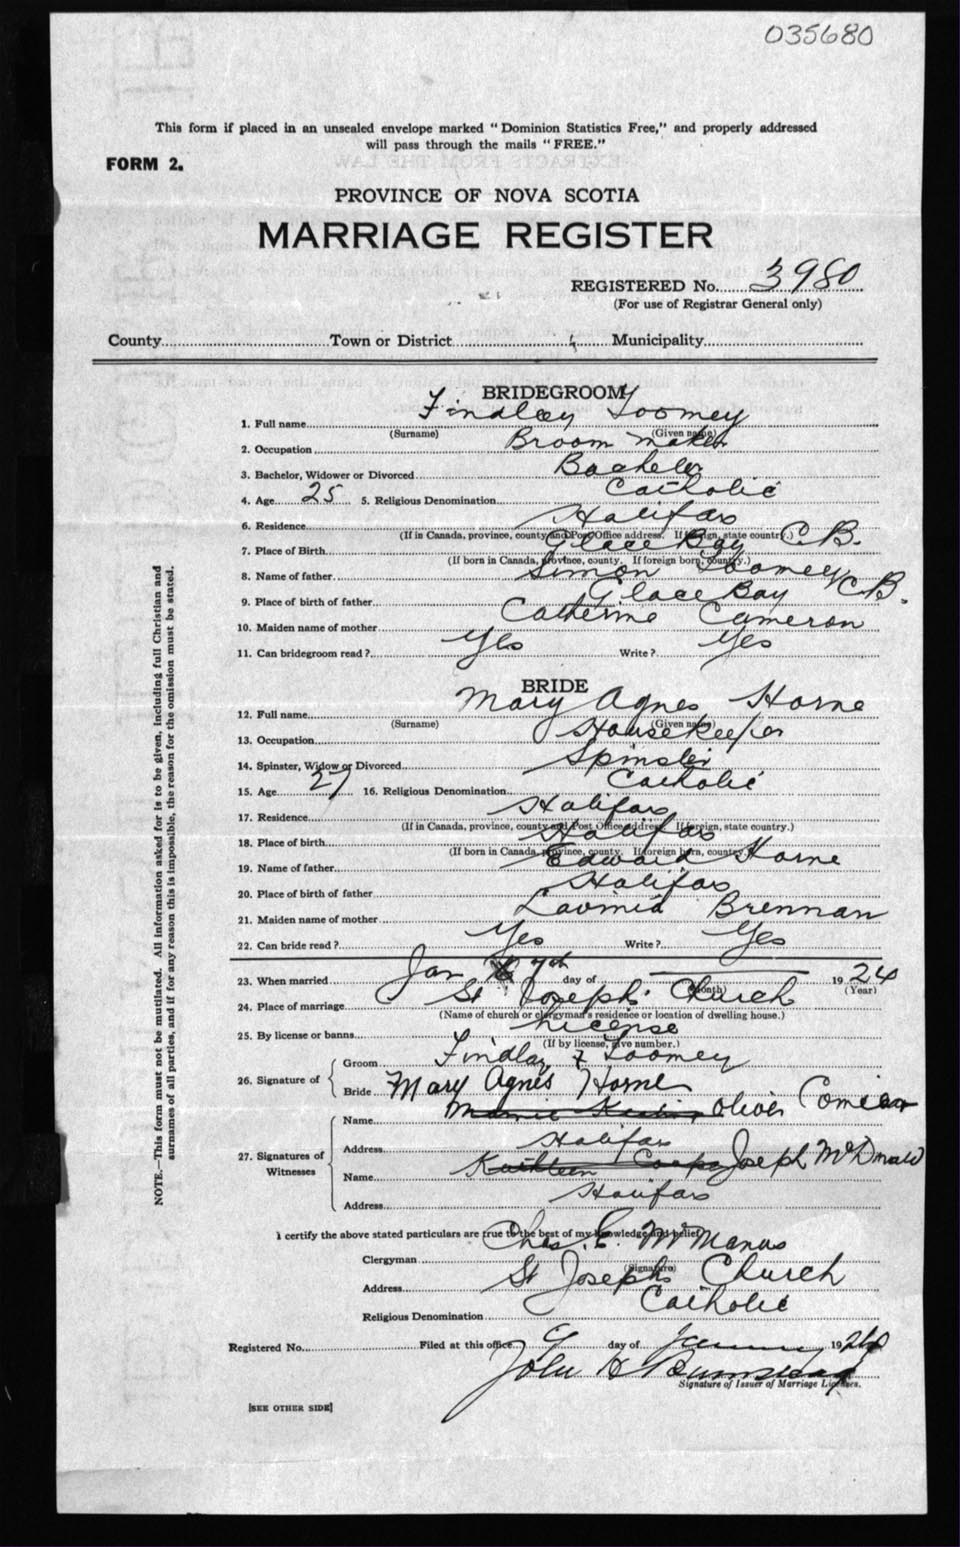 035680
This form if placed in an unsealed envelope marked "Dominion Statistics Free," and properly addressed
will pass through the mails "FREE."
FORM 2.
PROVINCE OF NOVA SCOTIA
MARRIAGE REGISTER
REGISTERED No. 3980
(For use of Registrar General only)
County Town or District Municipality
BRIDEGROOM
1. Full name Findlay Toomey
(Surname) (Given name)
2. Occupation Broom Maker
3. Bachelor, Widower or Divorced Bachelor
4. Age 25 5. Religious Denomination Catholic
6. Residence Halifax
(If in Canada, province, county and Post Office address. If foreign, state country.)
7. Place of Birth Glace Bay C.B.
(If born in Canada, province, county. If foreign born, country.)
8. Name of father Simon Toomey
9. Place of birth of father Glace Bay C.B.
10. Maiden name of mother Catherine Cameron
11. Can bridegroom read? Yes Write? Yes
BRIDE
12. Full name Mary Agnes Horne
(Surname) (Given name)
13. Occupation Housekeeper
14. Spinster, Widow or Divorced Spinster
15. Age 27 16. Religious Denomination Catholic
17. Residence Halifax
(If in Canada, province, county and Post Office address. If foreign, state country.)
18. Place of birth Halifax
(If born in Canada, province, county. If foreign born, country.)
19. Name of father Edward Horne
20. Place of birth of father Halifax
21. Maiden name of mother Brennan
22. Can bride read? Yes Write? Yes
23. When married Jan 7th day of 1924
(Month) (Year)
24. Place of marriage St Joseph's Church
(Name of church or clergyman's residence or location of dwelling house.)
25. By license or banns License
(If by license, give number.)
26. Signature of Groom Findlay Toomey
Bride Mary Agnes Horne
27. Signatures of Witnesses
Name Oliver
Address Halifax
Name Kathleen Joseph McDonald
Address Halifax
I certify the above stated particulars are true to the best of my knowledge and belief
Clergyman Chas. E. McManus
(Signature)
Address St Josephs Church
Religious Denomination Catholic
Registered No. Filed at this office 9 day of January 1924
John H
Signature of Issuer of Marriage Licenses.
[SEE OTHER SIDE]
NOTE.—This form must not be mutilated. All information asked for is to be given, including full Christian and
surnames of all parties, and if for any reason this is impossible, the reason for the omission must be stated.